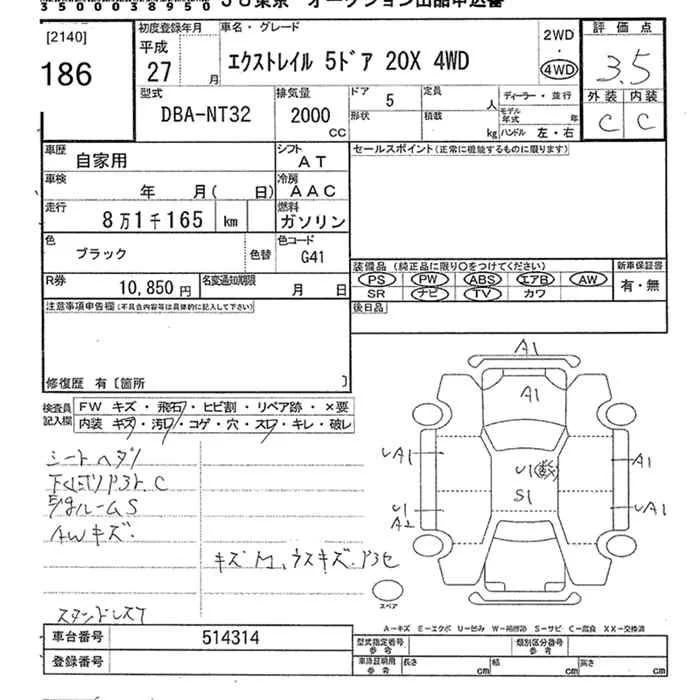 3500038950 JU東京 オークション出品申込書
[2140]
186
初度登録年月
平成
27 月
車名・グレード
エクストレイル 5ドア 20X 4WD
2WD
・
4WD
評価点
3.5
外装 内装
C C
型式
DBA-NT32
排気量
2000
CC
ドア 5
定員 人
形状
積載 kg
ディーラー・並行
モデル年式 年
ハンドル 左・右
車歴
自家用
シフト
AT
車検
年 月( 日)
冷房
AAC
走行
8万1千165 km
燃料
ガソリン
色
ブラック
色替
色コード
G41
R券
10,850円
名変通知期限
月 日
セールスポイント(正常に機能するものに限ります)
装備品(純正品に限り○をつけてください)
PS PW ABS エアB AW
SR ナビ TV カワ
新車保証書
有・無
後日品
注意事項申告欄(不具合内容等は具体的に記入して下さい)
修復歴 有〔箇所 〕
検査員記入欄
FW キズ・飛石・ヒビ割・リペア跡・×要
内装 キズ・汚レ・コゲ・穴・スレ・キレ・破レ
シートヘタリ
C
ルームS
AWキズ.
キズ M、ウスキズ.
A1
A1
UA1
U1
S1
A1
U1
A2
UA1
スペア
A-キズ E-エクボ U-凹み W-補修跡 S-サビ C-腐食 XX-交換済
車台番号 514314
登録番号
型式指定番号 参考
類別区分番号 参考
車庫証明用 参考
長さ cm
幅 cm
高さ cm